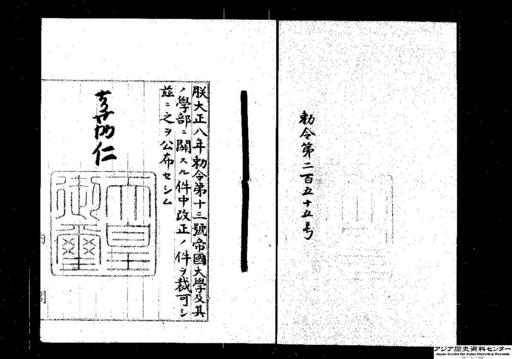 勅令第二百五十五号
朕大正八年勅令第十三號帝國大學及其
ノ學部ニ關スル件中改正ノ件ヲ裁可シ
茲ニ之ヲ公布セシム
嘉仁
天皇
御璽
アジア歴史資料センター
Japan Center for Asian Historical Records